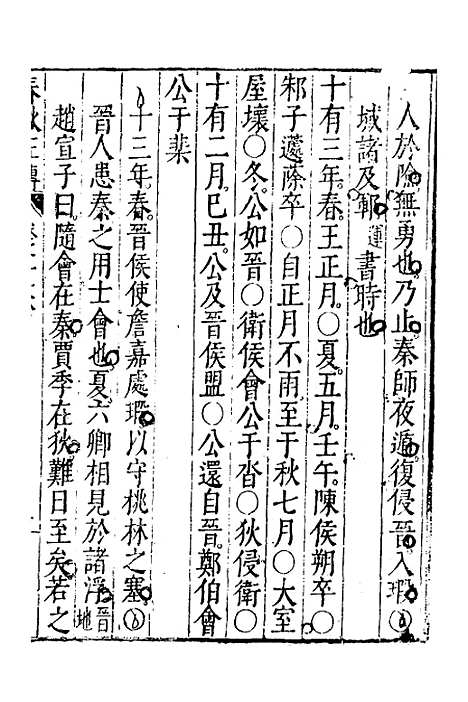 人於險無勇也乃止秦師夜遁復侵晉入瑕○
城諸及鄆 運 書時也
十有三年春王正月○夏五月壬午陳侯朔卒○
邾子蘧蒢卒○自正月不雨至于秋七月○大室
屋壞○冬公如晉○衛侯會公于沓○狄侵衛○
十有二月己丑公及晉侯盟○公還自晉鄭伯會
公于棐
十三年春晉侯使詹嘉處瑕以守桃林之塞○
晉人患秦之用士會也夏六卿相見於諸浮 晉地
趙宣子曰隨會在秦賈季在狄難日至矣若之
春秋左傳